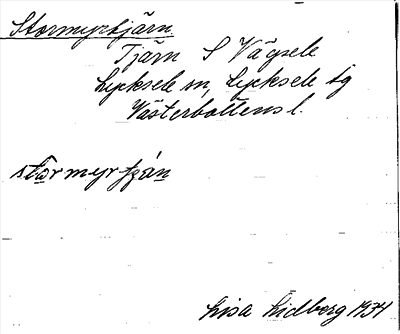 Stormyrtjärn.
Tjärn S Vägsele
Lycksele sn, Lycksele tg
Västerbottens l.
stormyrtján
Lisa Lidberg 1934